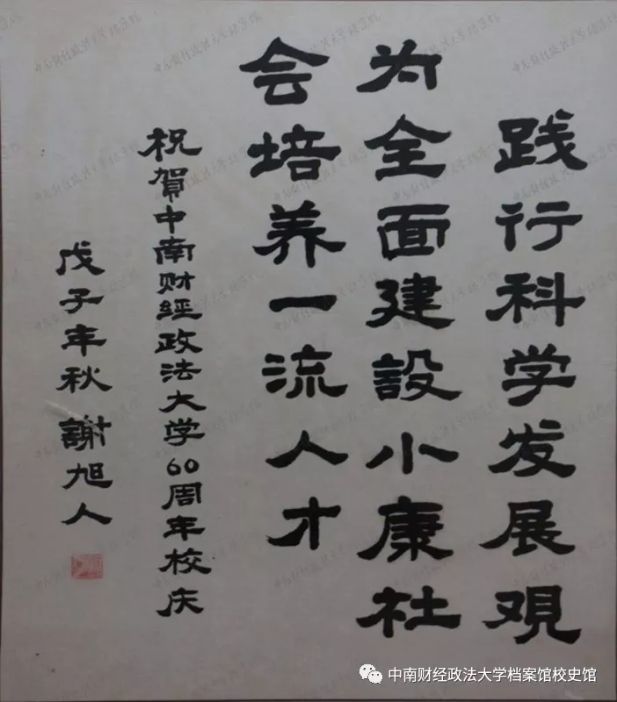 践行科学发展观
为全面建設小康社
会培养一流人才
祝賀中南财經政法大学60周年校庆
戊子年秋 謝旭人
中南财经政法大学档案馆校史馆